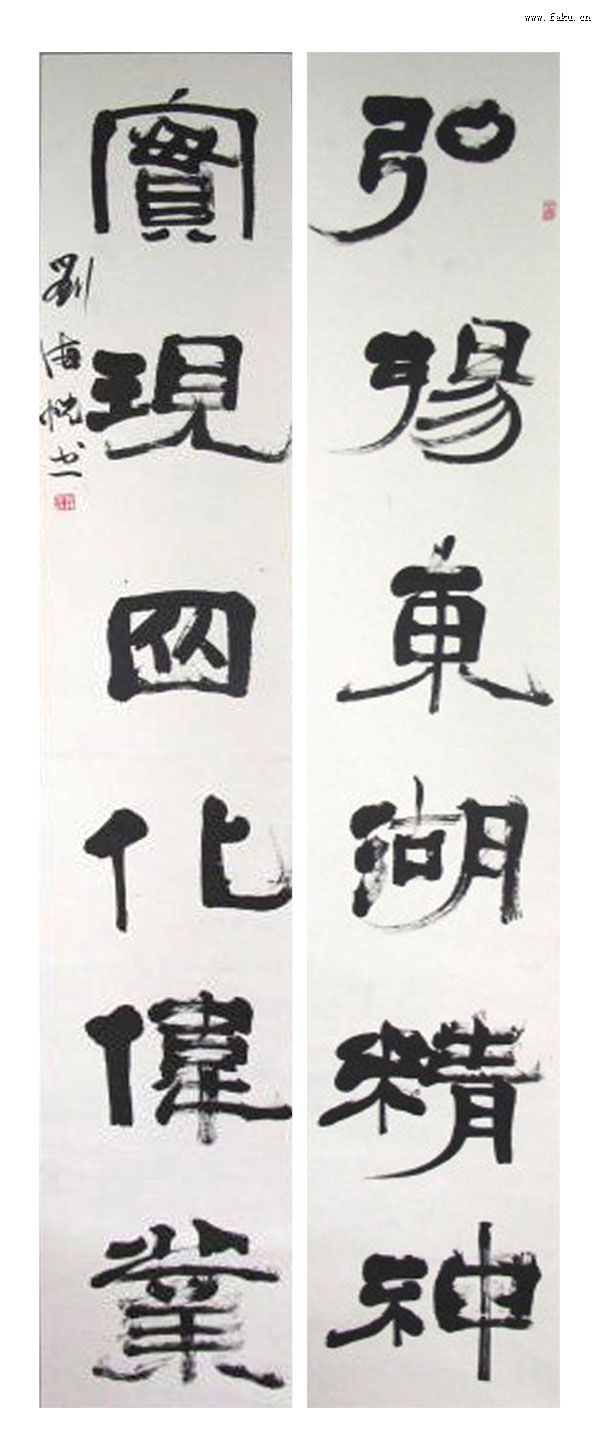 www.faku.cn
弘揚東湖精神
實現四化偉業
劉海悦书